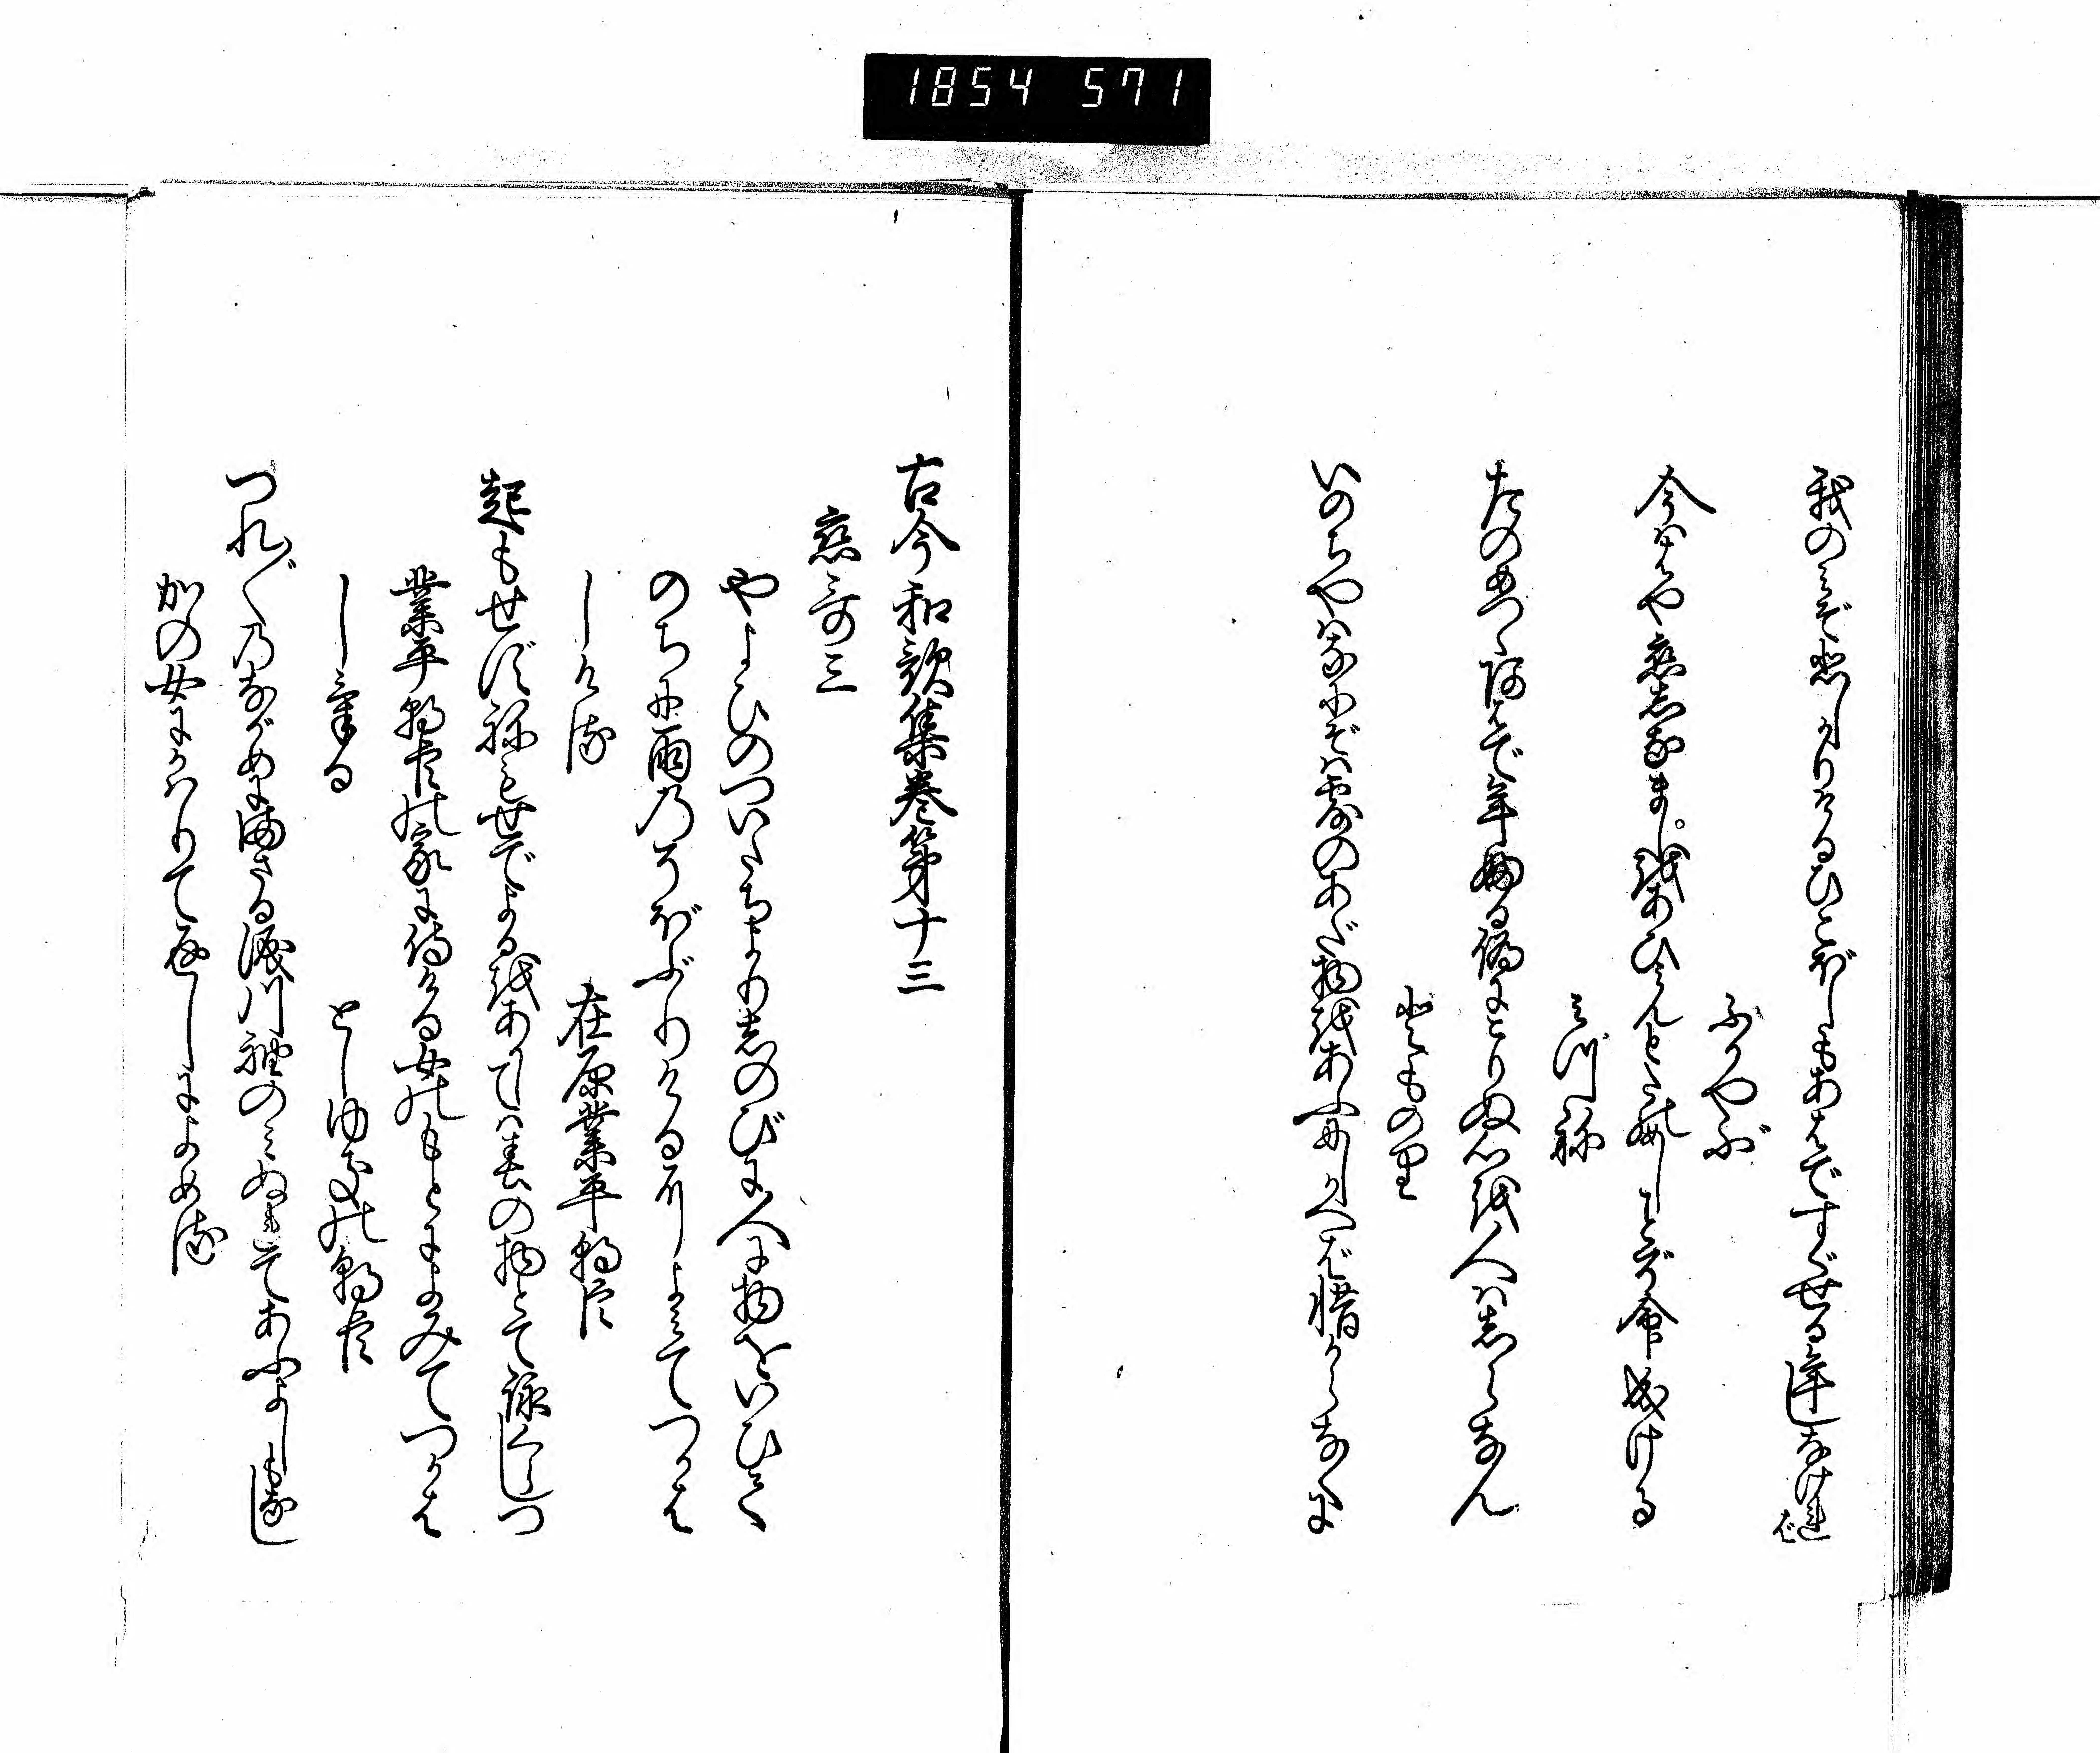 1854 571
我のみぞ悲しかりけるひこぼしもあはですぐせる年しなければ
ふかやぶ
今ははや恋しなましをあひみんとたのめしことぞ命成ける
みつね
たのめつゝあはで年ふる偽にこりぬ心を人はしらなん
とものり
いのちやはなにぞは露のあだ物をあふにしかへばおしからなくに
古今和歌集巻第十三
恋哥三
やよひのついたちよりしのびに人に物をいひて
のちに雨のそぼふりけるによみてつかは
しける
在原業平朝臣
起もせずねもせでよるをあかしては春の物とて詠くらしつ
業平朝臣の家に侍ける女のもとによみてつかは
しける
としゆきの朝臣
つれ〴〵のながめにまさる涙川袖のみぬれてあふよしもなし
かの女にかはりて返しによめる